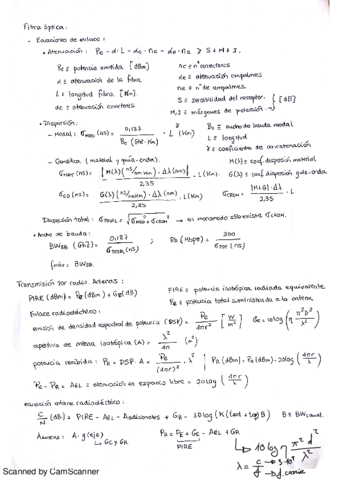 Fibra óptica:
- Ecuaciones de enlace:
• Atenuación: Pe - α·L - αc·nc - αe·ne ≥ S + M + I.
Pe ≡ potencia emitida [dBm]
nc ≡ nº conectores
α ≡ atenuación de la fibra
αe ≡ atenuación empalmes
L ≡ longitud fibra [Km].
ne ≡ nº de empalmes.
αc ≡ atenuación conectores
S ≡ sensibilidad del receptor.
M, I ≡ márgenes de potencia } [dB]
• Dispersión:
- modal: σmod (ns) = 0,187 / B0 (GHz·Km) · L^γ (Km)
B0 ≡ ancho de banda modal
L ≡ longitud
γ ≡ coeficiente de concatenación
- Cromática (material y guía-onda).
M(λ) ≡ coef. dispersión material
σmat (ns) = |M(λ) (ns/nm·Km) · Δλ (nm)| / 2,35 · L (Km)
G(λ) ≡ coef. dispersión guía-onda
σGO (ns) = G(λ) (ns/nm·Km) · Δλ (nm) / 2,35 · L (Km)
σCROM = |M+G|·Δλ / 2,35 · L
Dispersión total: σTOTAL = √(σmod² + σcrom²) → en monomodo sólo existe σCROM.
• Ancho de banda:
BWeo (GHz) = 0,187 / σTOTAL (ns) ; Rb (Mbps) = 300 / σTOT (ns)
fmáx = BWeo.
Transmisión por radio. Antenas:
PIRE (dBm) = Pe (dBm) + Ge (dB)
PIRE ≡ potencia isotrópica radiada equivalente
Pe ≡ potencia total suministrada a la antena
Enlace radioeléctrico:
emisión de densidad espectral de potencia (DSP) = Pe / 4πr² [W/m²]
Ge = 10 log (η π²D²/λ²)
apertura de antena isotrópica (A) = λ²/4π (m²)
potencia recibida: PR = DSP·A = Pe / (4πr)² · λ²
PR (dBm) = Pe (dBm) - 20 log (4πr/λ)
Pe - PR = AEL ≡ atenuación en espacio libre = 20 log (4πr/λ)
ecuación enlace radioeléctrico:
C/N (dB) = PIRE - AEL - Aadicionales + GR - 10 log (K (tant + to) B)
B ≡ BW canal.
Antena: A·g(eje)
→ GE y GR
PR = PE + GE - AEL + GR
PIRE
→ 10 log η π² d² / λ²
λ = c/f → 3·10⁸
Scanned by CamScanner